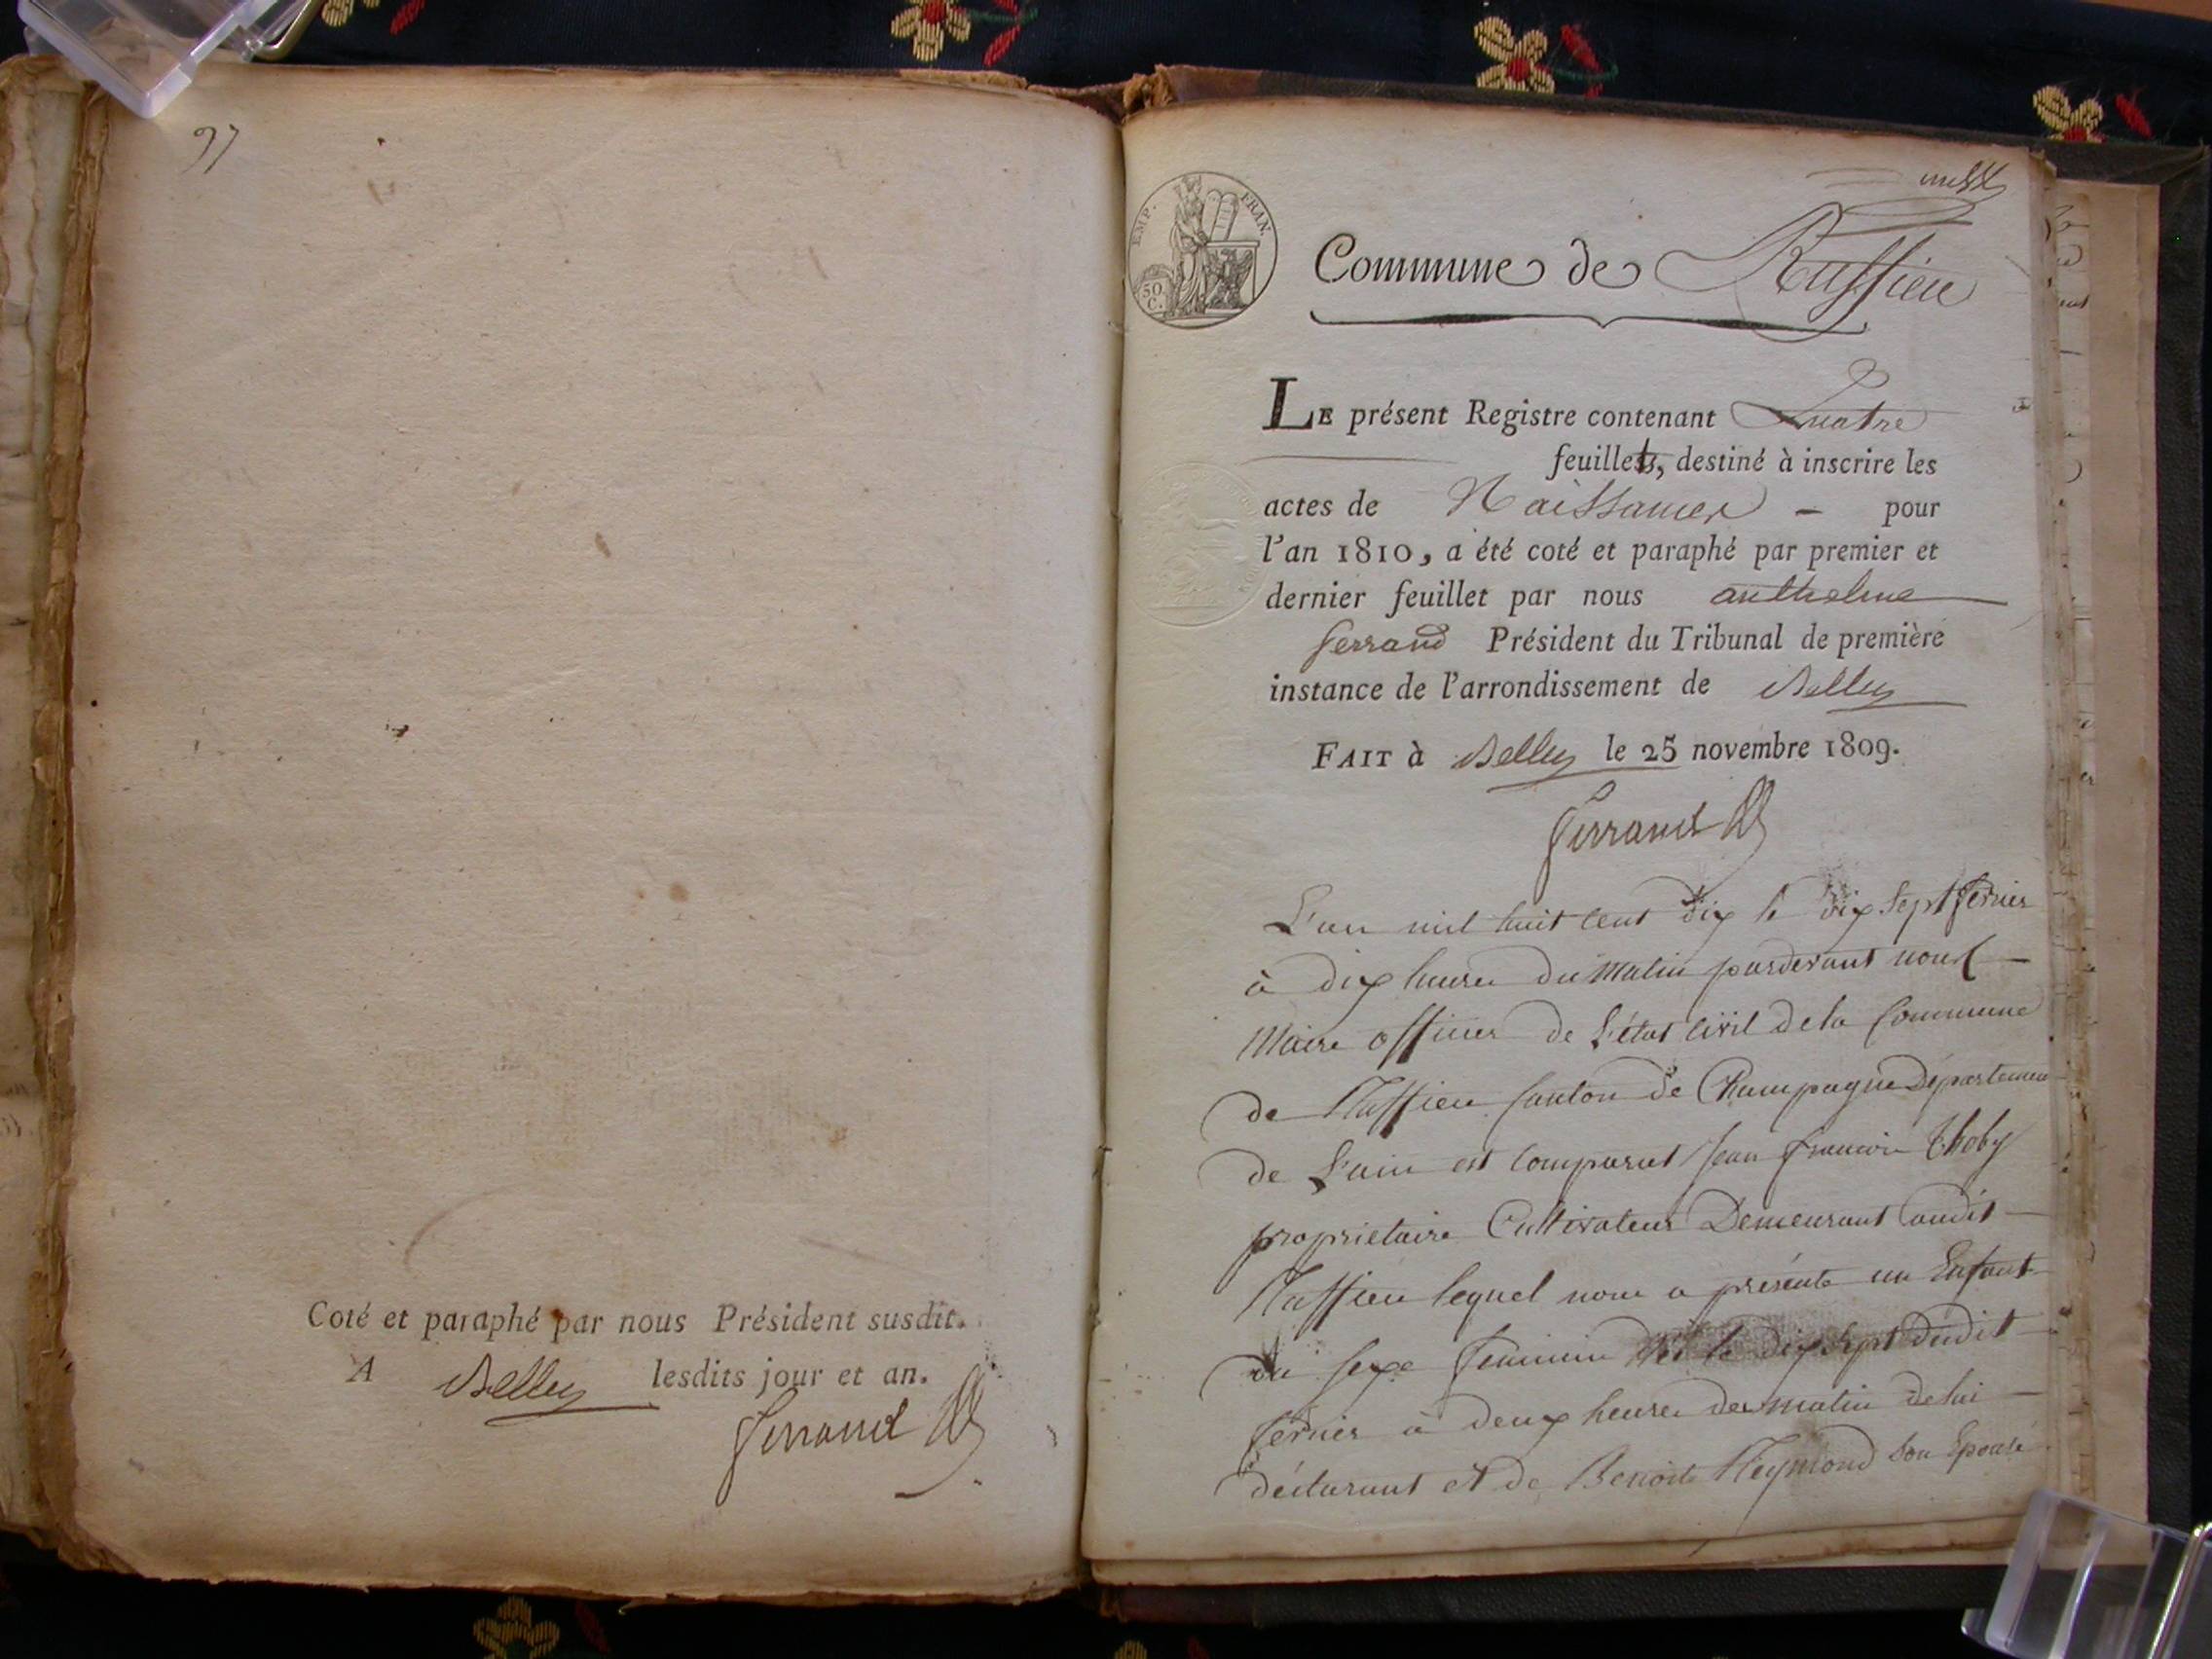 97
Coté et paraphé par nous Président susdit.
A Belley lesdits jour et an.
Ferrand
EMP. FRAN.
50 C.
Commune de Ruffieu
LE présent Registre contenant Quatre
feuillets, destiné à inscrire les
actes de Naissances – pour
l'an 1810, a été coté et paraphé par premier et
dernier feuillet par nous anthelme
ferrand Président du Tribunal de première
instance de l'arrondissement de Belley
FAIT à Belley le 25 novembre 1809.
Ferrand
L'an mil huit cent dix le dix sept fevrier
à dix heures du matin pardevant nous
Maire officier de L'état civil de la Commune
de Ruffieu Canton de Champagne Departement
de L'ain est comparut Jean francois Thoby
proprietaire Cultivateur Demeurant audit
Ruffieu lequel nous a présenté un Enfant
du sexe feminin né le dix sept dudit
fevrier à deux heures du matin de lui
déclarant et de Benoite Reymond son Epouse